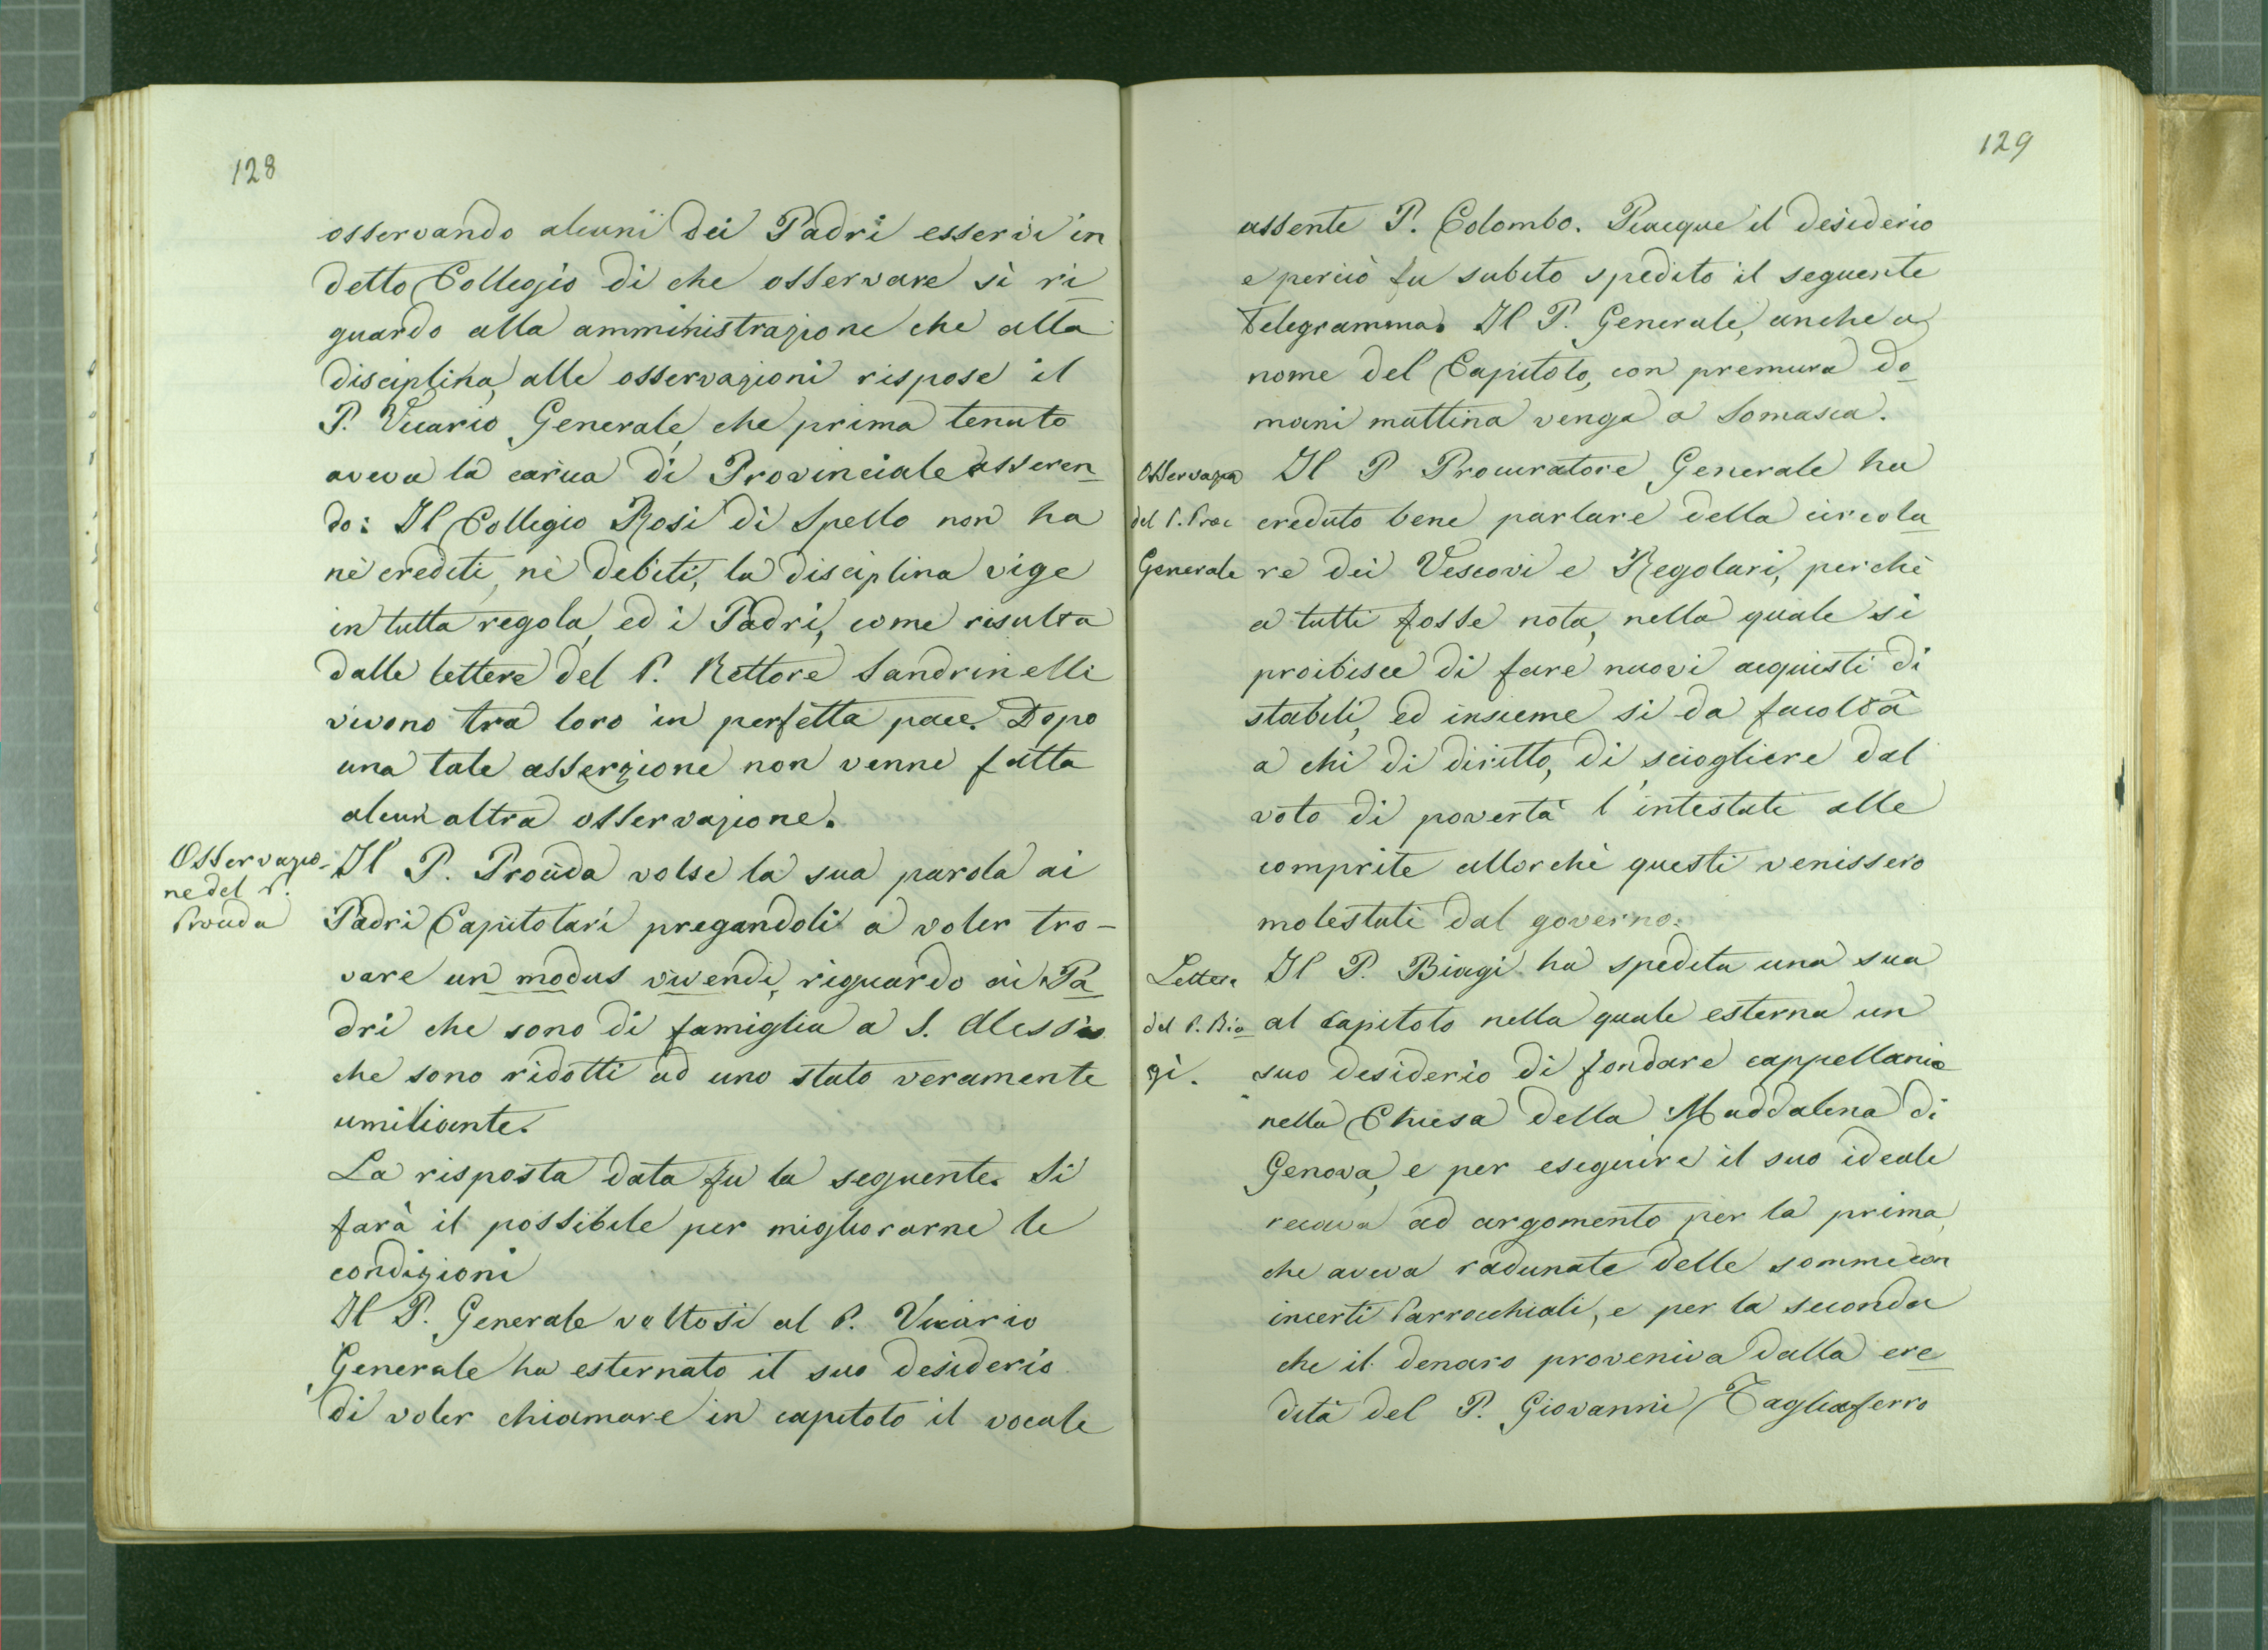 128
osservando alcuni dei Padri esservi in
detto Collegio di che osservare sì ri
guardo alla amministrazione che alla
disciplina, alle osservazioni rispose il
P. Vicario Generale, che prima tenuto
aveva la carica di Provinciale asseren
do: Il Collegio Rosi di Spello non ha
nè crediti, nè debiti, la disciplina vige
in tutta regola, ed i Padri, come risulta
dalle lettere del P. Rettore Sandrinelli
vivono tra loro in perfetta pace. Dopo
una tale asserzione non venne fatta
alcun altra osservazione.
Osservazio-
ne del P.
Provida
Il P. Provida volse la sua parola ai
Padri Capitolari pregandoli a voler tro-
vare un modus vivendi, riguardo ai Pa
dri che sono di famiglia a S. Alessio
che sono ridotti ad uno stato veramente
umiliante.
La risposta data fu la seguente. Si
farà il possibile per migliorarne le
condizioni
Il P. Generale voltosi al P. Vicario
Generale ha esternato il suo desiderio
di voler chiamare in capitolo il vocale
129
assente P. Colombo. Piacque il desiderio
e perciò fu subito spedito il seguente
Telegramma. Il P. Generale, anche a
nome del Capitolo, con premura do
mani mattina venga a Somasca.
del P. Proc
Generale
Il P Procuratore Generale ha
creduto bene parlare della circola
re dei Vescovi e Regolari, perchè
a tutti fosse nota, nella quale si
proibisce di fare nuovi acquisti di
stabili, ed insieme si da facoltà
a chi di diritto, di sciogliere dal
voto di povertà l'intestati alle
comprite allorchè questi venissero
molestati dal governo.
Lettera
del P. Bia
gi.
Il P. Biagi ha spedita una sua
al Capitolo nella quale esterna un
suo desiderio di fondare cappellania
nella Chiesa della Maddalena di
Genova, e per eseguire il suo ideale
recava ad argomento per la prima,
che aveva radunate delle somme con
incerti Parrocchiali, e per la seconda
che il denaro proveniva dalla ere
dità del P. Giovanni Tagliaferro